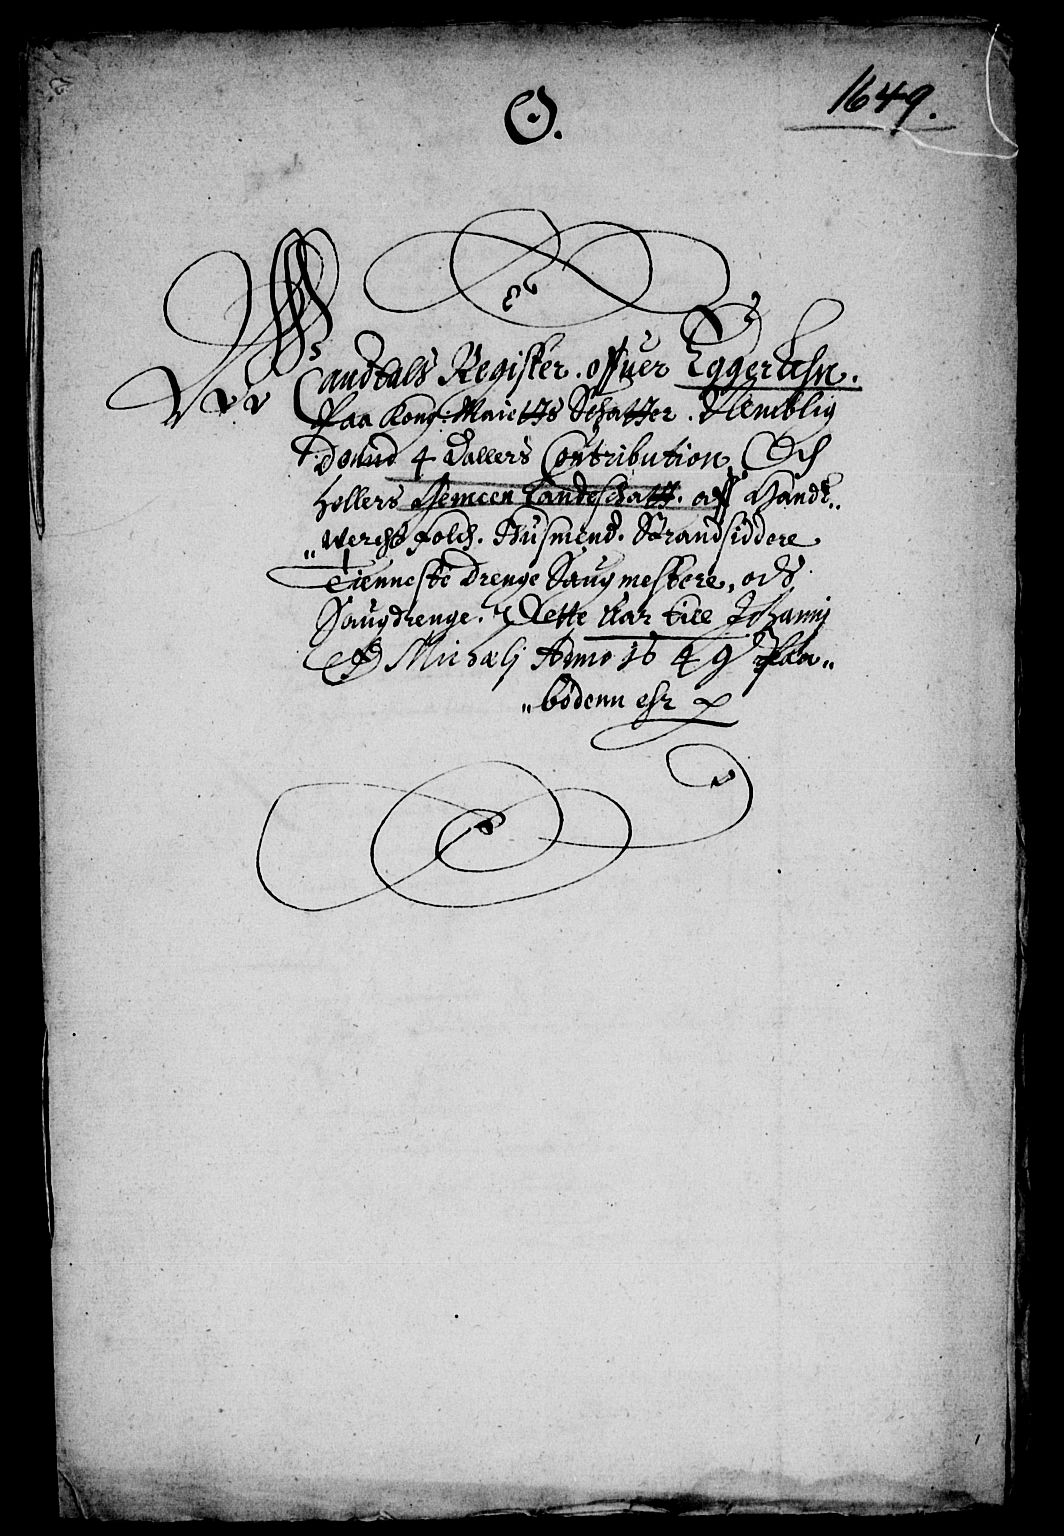 O.
1649.
Mandtals Register offuer Eggerschn.
Paa Kong: Maietts Schatter. Nemblig
4 Dallers Contribution Och
hellers Gemeen Landeschatt. aff Handt„
„werchs folch. Husmend. Strandsiddere
Tienneste Drenge Saugmestere, och
Saugdrenge. Dette Aar till Johannj
Michælj Anno 1649 Paa„
„bödenn ehr